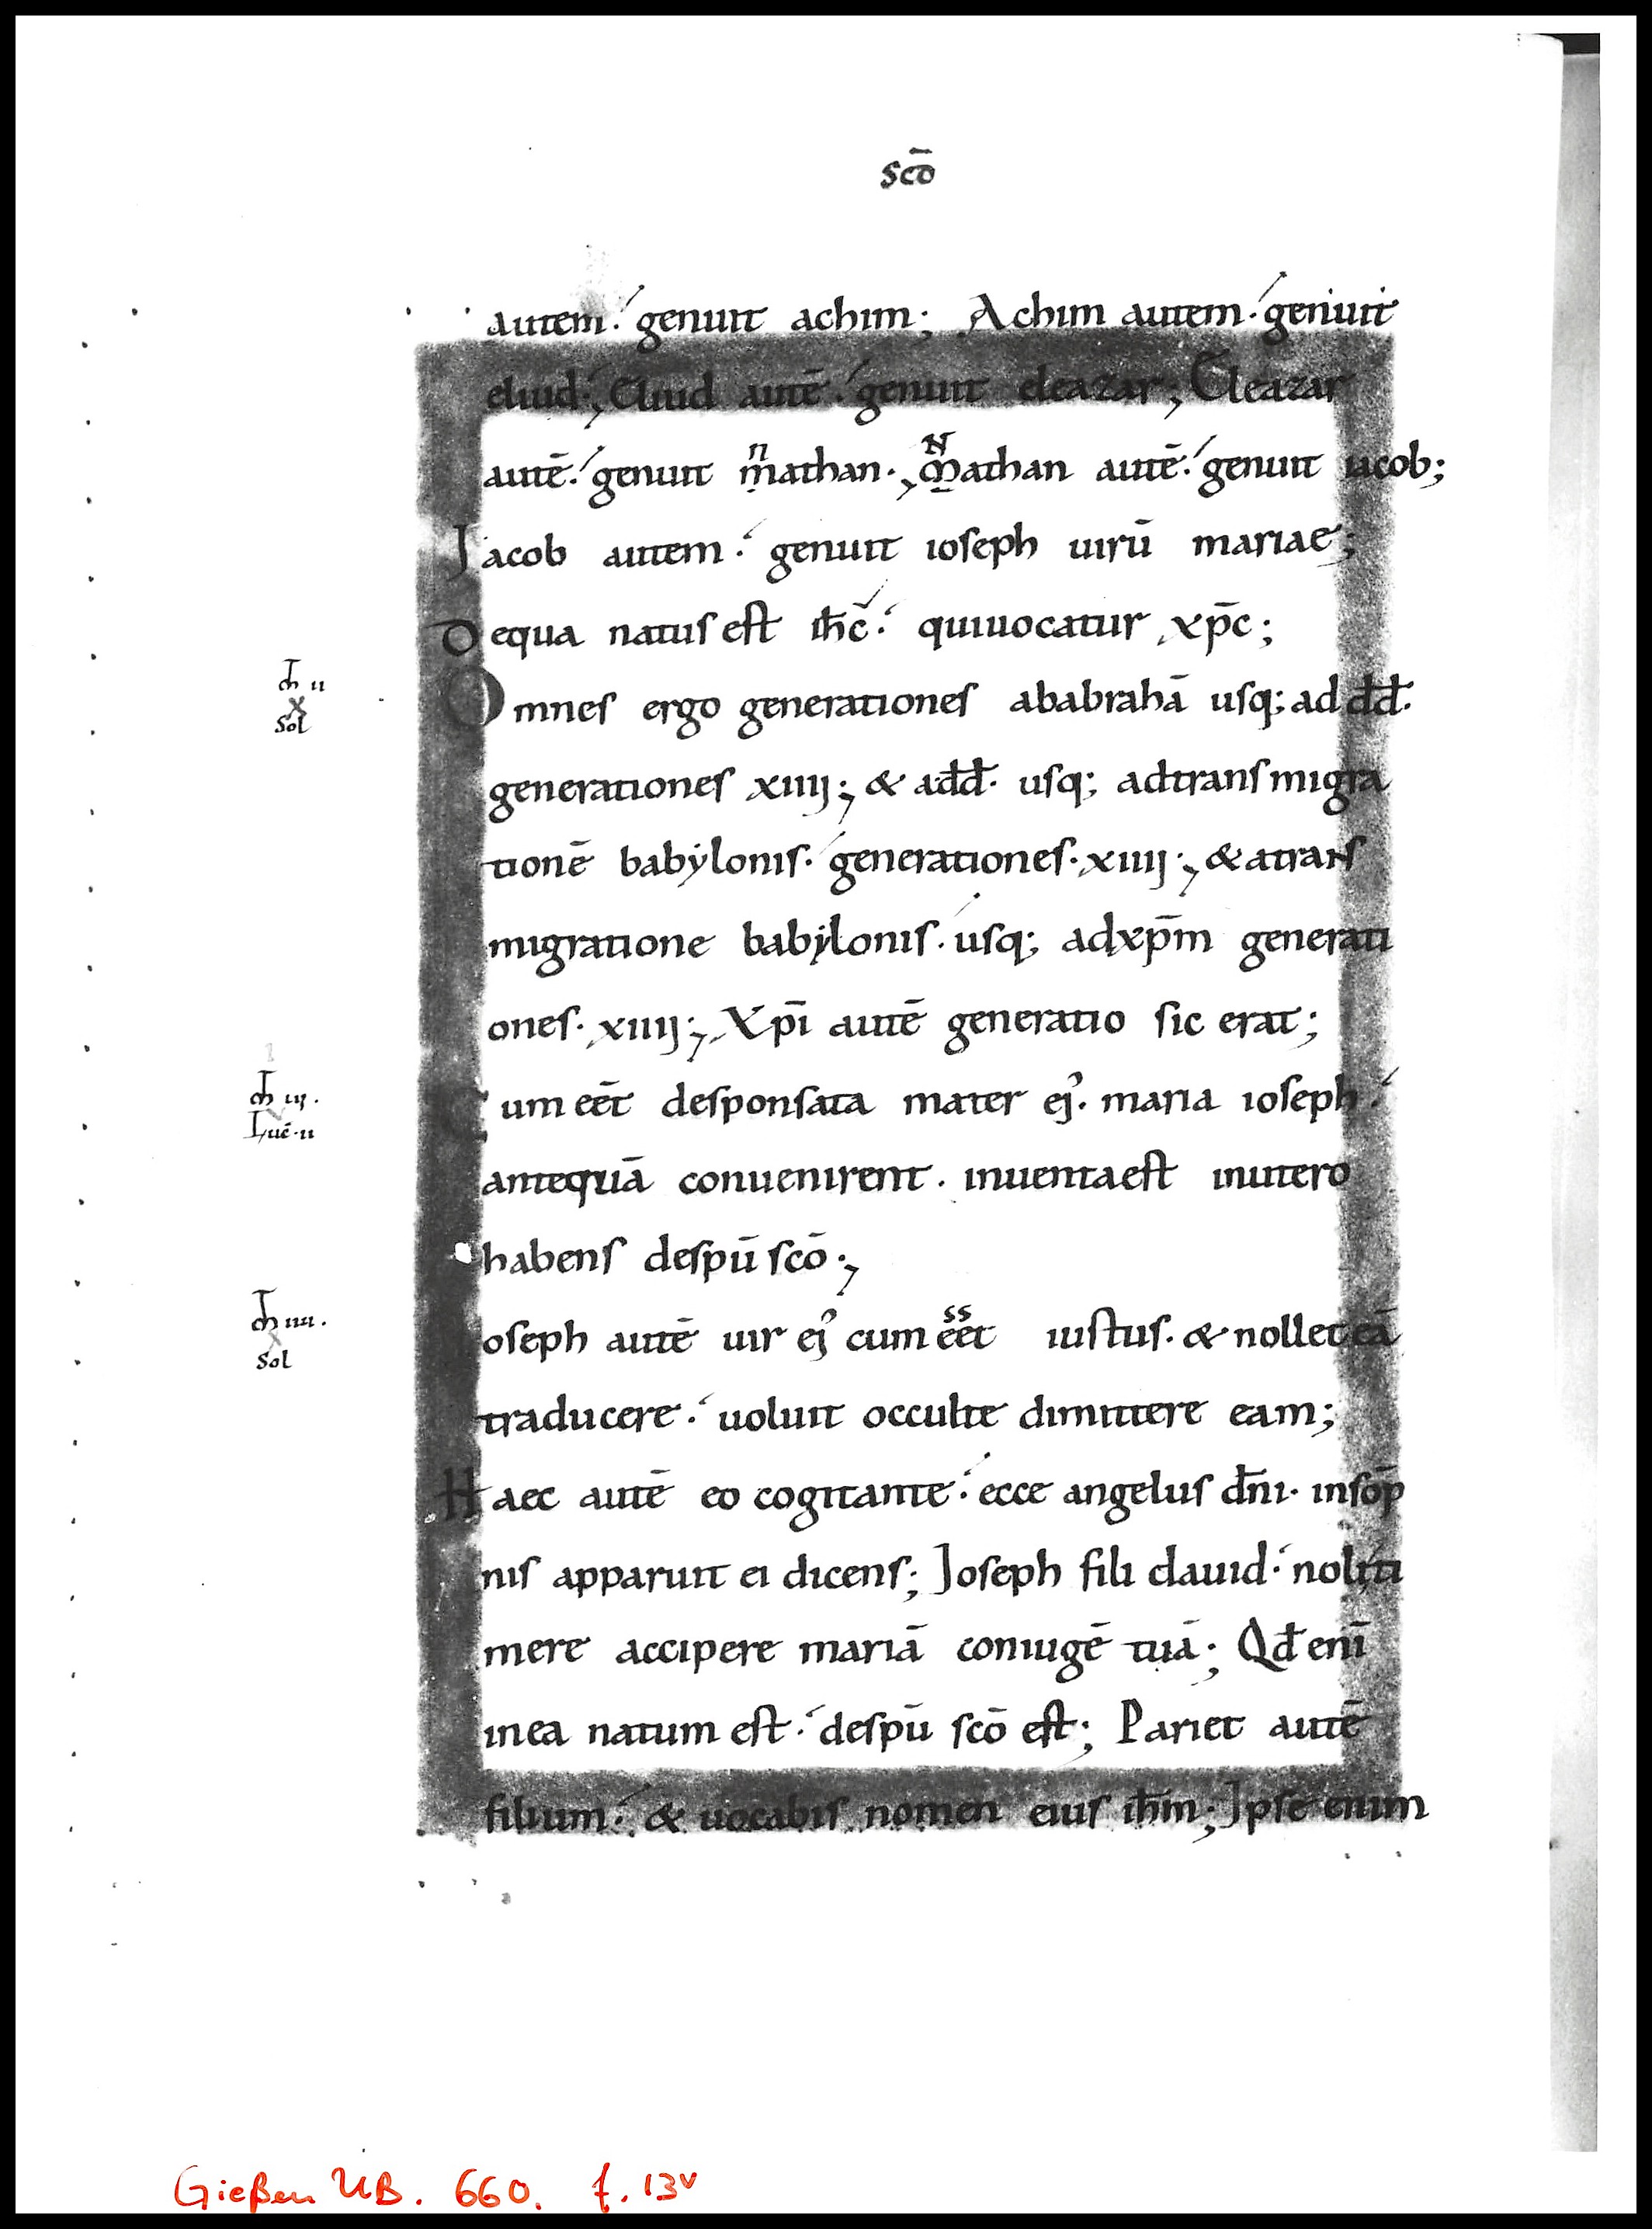 scō
autem. genuit achim; Achim autem. genuit
eliud; Eliud autē. genuit eleazar; Eleazar
autē. genuit mathan. Mathan autē. genuit iacob;
n N
Jacob autem. genuit ioseph uirū mariae;
dequa natus est ih̄c. quiuocatur xp̄c;
Omnes ergo generationes ababrahā usq; ad dd̄.
ch ii
x
Sol
generationes xiiij; & add̄. usq; adtransmigra
tionē babylonis. generationes. xiiij; & atrans
migratione babylonis. usq; adxp̄m generati
ones. xiiij; Xp̄i autē generatio sic erat;
Cum eēt desponsata mater ej᾽. maria ioseph.
ch iij.
Luc̄. ii
antequā conuenirent. inuentaest inutero
habens despū scō;
Ioseph autē uir ej᾽ cum eēt iustus. & nollet eā
ss
ch iiii.
x
Sol
traducere. uoluit occulte dimittere eam;
Haec autē eo cogitante. ecce angelus dn̄i. insōp
nis apparuit ei dicens; Joseph fili dauid. noli ti
mere accipere mariā coniugē tuā; Qd̄ enī
inea natum est. despū scō est; Pariet autē
filium. & uocabis nomen eius ih̄m; Ipse enim
Gießen UB. 660. f. 13v